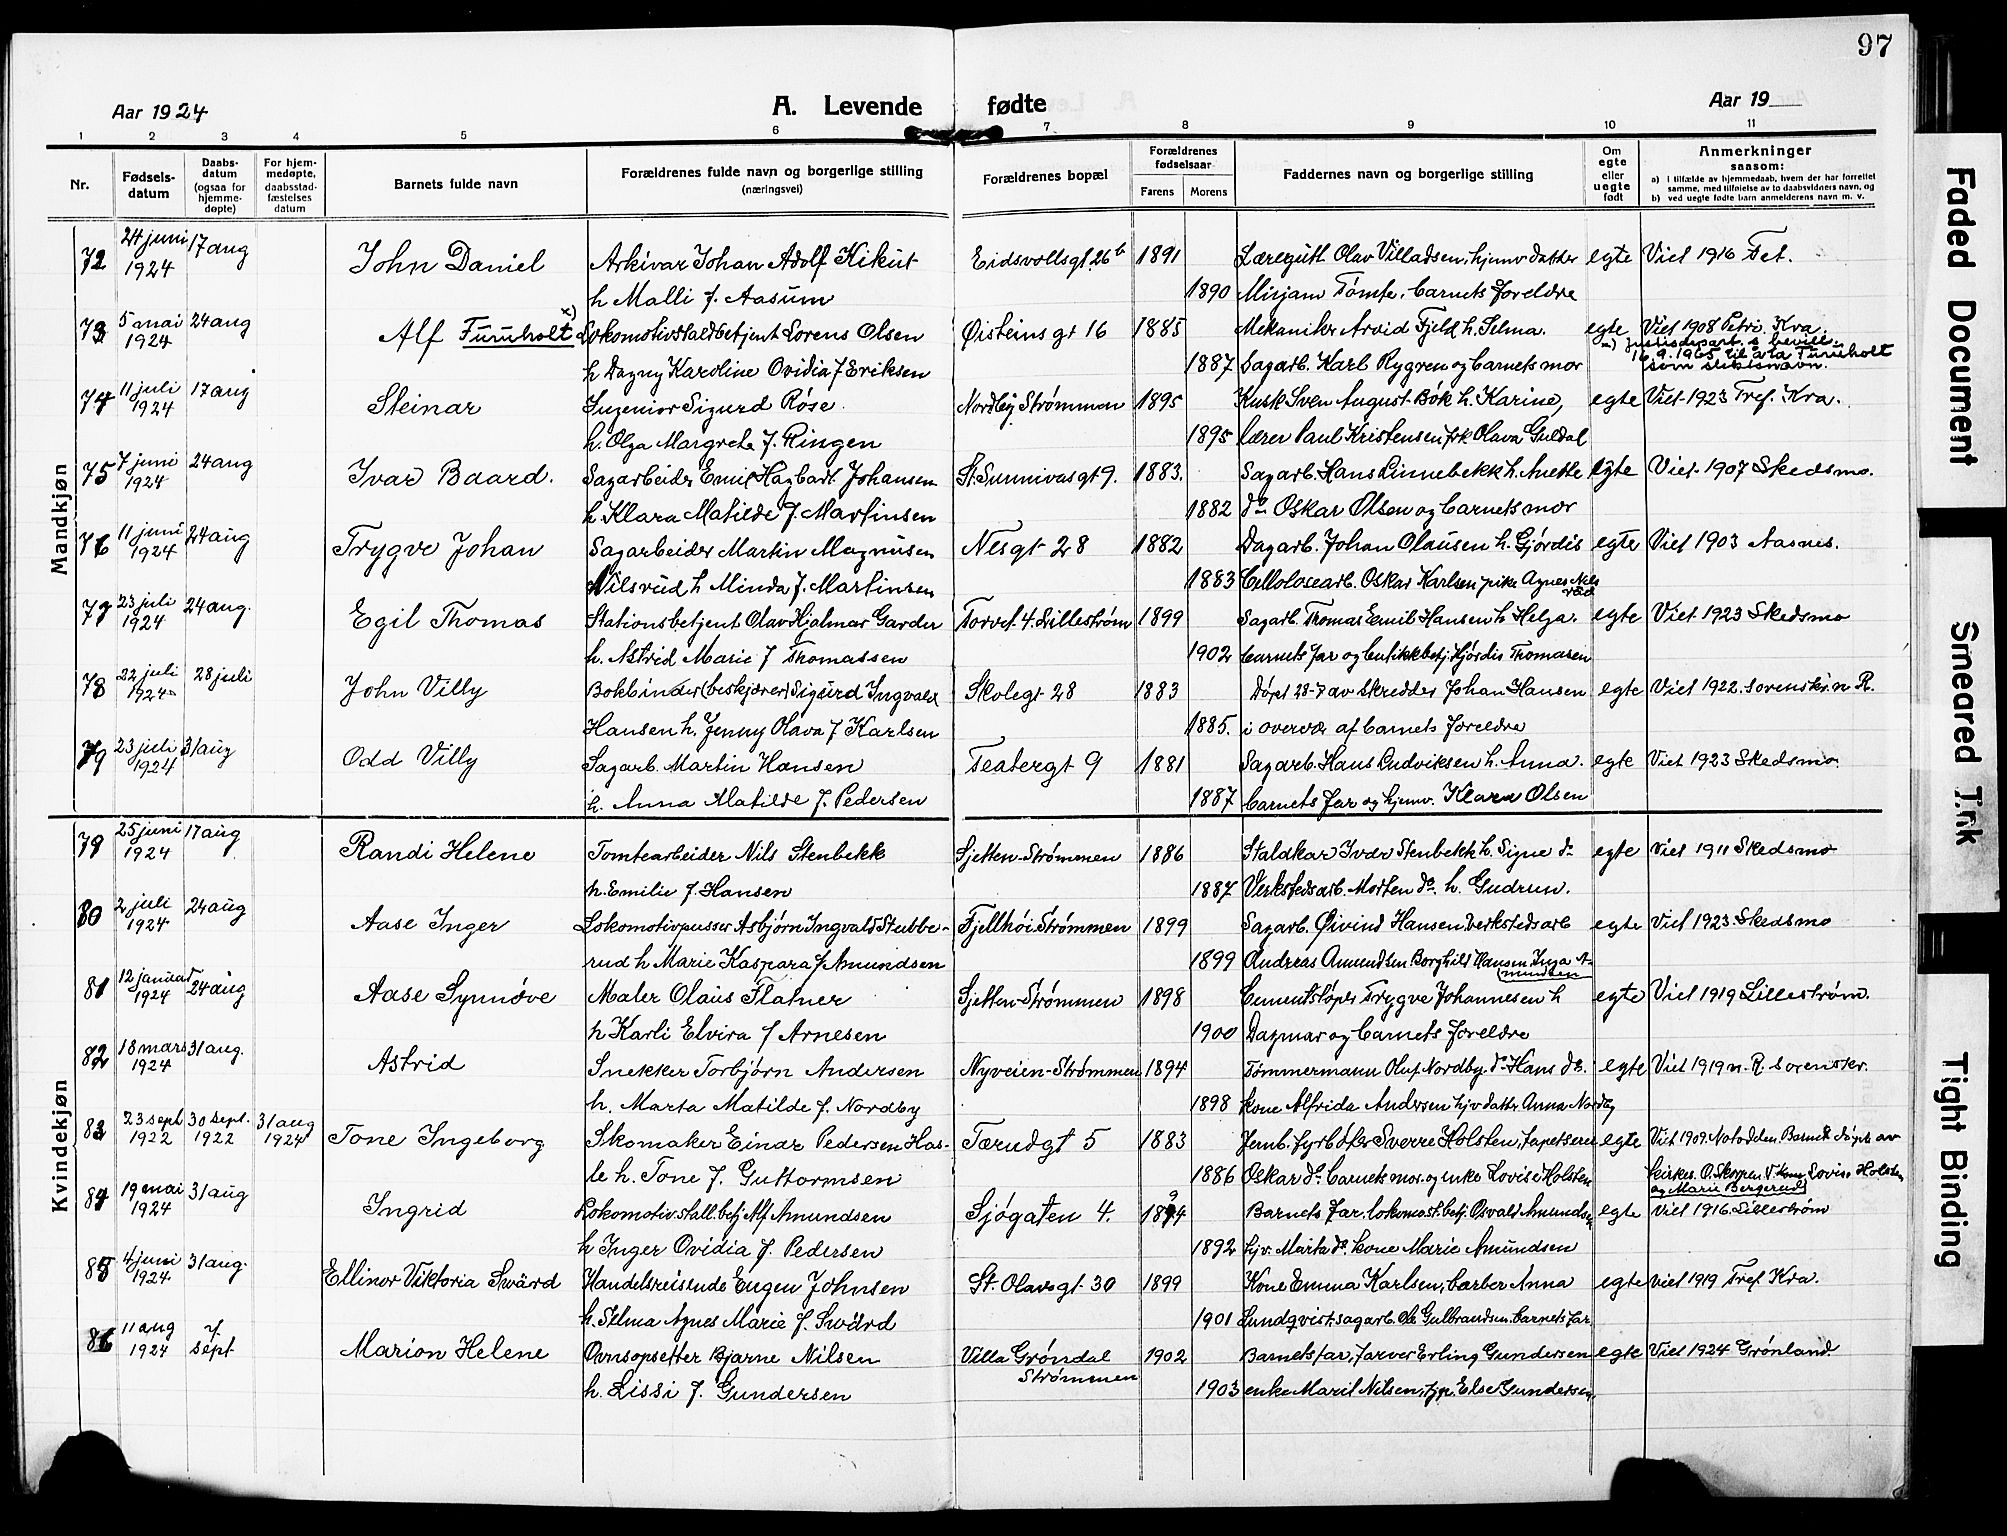 97
Aar 1924
A. Levende fødte
Aar 19
1 2 3 4 5 6 7 8 9 10 11
Nr.
Fødsels-
datum
Daabs-
datum
(ogsaa for
hjemme-
døpte)
For hjem-
medøpte,
daabsstad-
fæstelses
datum
Barnets fulde navn
Forældrenes fulde navn og borgerlige stilling
(næringsvei)
Forældrenes bopæl
Forældrenes
fødselsaar
Farens Morens
Faddernes navn og borgerlige stilling
Om
egte
eller
uegte
født
Anmerkninger
saasom:
a) i tilfælde av hjemmedaab, hvem der har forrettet
samme, med tilføielse av to daabsvidners navn, og
b) ved uegte fødte barn anmelderens navn m. v.
Mandkjøn
72 24 juni 1924 17 aug John Daniel Arkivar Johan Adolf Kikut Eidsvollsgt. 26b 1891 Læregutt Olav Villadsen, hjemv. datter egte Viet 1916 Fet.
h Malli f. Aasum 1890 Mirjam Tømte, barnets foreldre
73 5 mai 1924 24 aug Alf Furuholt x) Lokomotivstaldbetjent Lorens Olsen Øisteins gt 16 1885 Mekaniker Arvid Fjeld h. Selma. egte Viet 1908 Petri. Kra.
x) Justisdepart.s bevill.
16.9.1965 til å ta Furuholt
som slektsnavn.
h Dagny Karoline Ovidia f Eriksen 1887 Sagarb. Karl Rygren og barnets mor
74 11 juli 1924 17 aug Steinar Ingeniør Sigurd Røse. Nordby Strømmen 1895 Kusk Sven August Bøk h. Karine, egte Viet 1923 Tref. Kra.
h. Olga Margrete f. Ringen 1895 lærer Paul Kristensen frk Olava Guldal
75 7 juni 1924 24 aug Ivar Baard. Sagarbeider Emil Hagbart Johansen St. Sunnivas gt 9. 1883. Sagarb. Hans Linnebekk h. Anette egte Viet 1907 Skedsmo.
h. Klara Matilde f. Martinsen 1882 do Oskar Olsen og barnets mor
76 11 juni 1924 24 aug Trygve Johan Sagarbeider Martin Magnusen Nesgt 28 1882 Dagarb. Johan Olausen h. Gjørdis egte Viet 1903 Aasnes.
Nilsrud h Minda f. Martinsen 1883 Cellolosearb. Oskar Karlsen, pike Agnes Nilsrud
77 23 juli 1924 24 aug. Egil Thomas Stationsbetjent Olav Hjalmar Garder Torvet 4. Lillestrøm 1899 Sagarb. Thomas Emil Hansen h Helga. egte Viet 1923 Skedsmo
h. Astrid Marie f Thomassen 1902 barnets far og butikkbetj. Hjørdis Thomasen
78 22 juli 1924 28 juli John Villy Bokbinder (beskjærer) Sigurd Ingvald Skolegt 28 1883 Døpt 28-7 av skredder Johan Hansen egte Viet 1922. sorenskr. n R.
Hansen h. Jenny Olava f Karlsen 1885. i overvær af barnets foreldre
79 23 juli 1924 31 aug Odd Villy Sagarb. Martin Hansen Teatergt 9 1881 Sagarb. Hans Ludviksen h. Anna. egte Viet 1923 Skedsmo
h. Anna Matilde f. Pedersen 1887 barnets far og hjemv. Klara Olsen
Kvindekjøn
79 25 juni 1924 17 aug Randi Helene Tomtearbeider Nils Stenbekk Sjetten-Strømmen 1886 Staldkar Ivar Stenbekk h. Signe do egte Viet 1911 Skedsmo
h. Emilie f. Hansen 1887 Verkstedsarb. Morten do h. Gudrun.
80 2 juli 1924 24 aug Aase Inger Lokomotivpusser Asbjørn Ingvald Stubbe- Fjellhøi Strømmen 1899 Sagarb. Øivind Hansen, verkstedsarb egte Viet 1923 Skedsmo
rud h Marie Kaspara f Amundsen 1899 Andreas Amundsen Borghild Hansen Inga A-
mundsen
81 12 januar 1924 24 aug Aase Synnøve Maler Olaus Flatner Sjetten-Strømmen 1898 Cementstøper Trygve Johannesen h egte Viet 1919 Lillestrøm.
h Karli Elvira f Arnesen 1900 Dagmar og barnets foreldre
82 18 mars 1924 31 aug. Astrid Snekker Torbjørn Andersen Nyveien-Strømmen 1894 Tømmermann Oluf Nordby do Hans do. egte Viet 1919 n. R. sorenskr.
h. Marta Matilde f. Nordby 1898 kone Alfrida Andersen hjv datter Anna Nordby
83 23 sept 1922 30 sept. 1922 31 aug 1924 Tone Ingeborg Skomaker Einar Pedersen Has- Tærudgt 5 1883 Jernb. fyrbøter Sverre Holsten, tapetserer egte Viet 1909. Notodden. Barnet døpt av
le h. Tone f. Guttormsen 1886 Oskar do barnets mor og enke Lovise Holsten kirkes. O. Skogen. Lovise Holsten
og Marie Bergerud
84 19 mai 1924 31 aug Ingrid Lokomotivstall.betj. Alf Amundsen Sjøgaten 4. 1894 Barnets far, lokomost.betj. Osvald Amundsen egte Viet 1916. Lillestrøm
h Inger Ovidia f. Pedersen 1892 hjv. Marta do. kone Marie Amundsen
85 4 juni 1924 31 aug. Ellinor Viktoria Swärd Handelsreisende Eugen Johnsen St. Olavs gt. 30 1899 Kone Emma Karlsen, barber Anna egte viet 1919 Tref. Kra.
h. Selma Agnes Marie f. Swärd 1901 Lundqvist. sagarb. Ole Gulbrandsen. barnets far.
86 11 aug 1924 7. sept Marion Helene Ovnsopsetter Bjarne Nilsen Villa Grøndal
Strømmen 1902 Barnets far, farver Erling Gundersen egte Viet 1924 Grønland
h. Lissi f. Gundersen 1903 enke Marit Nilsen, tjp. Else Gundersen.
Faded Document
Smeared Ink
Tight Binding